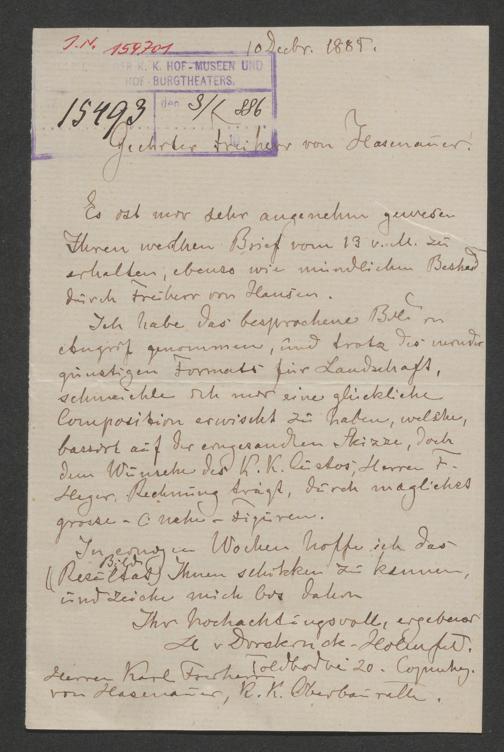 J.N. 159701
10 Decbr. 1885.
K. K. HOF-MUSEEN UND
HOF-BURGTHEATERS.
15493 den 3/I 886
Geehrter Freiherr von Hasenauer!
Es ist mir sehr angenehm gewesen
Ihren werthen Brief vom 13 v. M. zu
erhalten, ebenso wie mündlichen Bescheid
durch Freiherr von Hansen.
Ich habe das besprochene Bild in
Angrif genommen, und trotz des minder
günstigen Formats für Landschaft,
schmeichle ich mir eine glückliche
Composition erwischt zu haben, welche,
basirt auf der eingesandten Skizze, doch
dem Wunsche des K. K. Custos, Herren F.
Heger, Rechnung trägt, durch möglichst
grosse Figuren.
In einigen Wochen hoffe ich das
Bild
(Resultat) Ihnen schikken zu kønnen,
und zeiche mich bis dahin
Ihr hochachtungsvoll, ergebener
Toldbodvei 20 - Copenhg.
Herren Karl Freiherr
von Hasenauer, K. K. Oberbaurath.